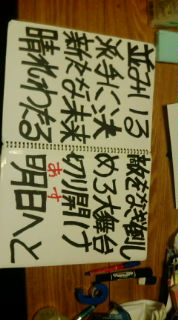 並みいる敵をなぎ倒し
派手に決める大舞台
新たな未来切り開け
晴れわたる明日へと
あす